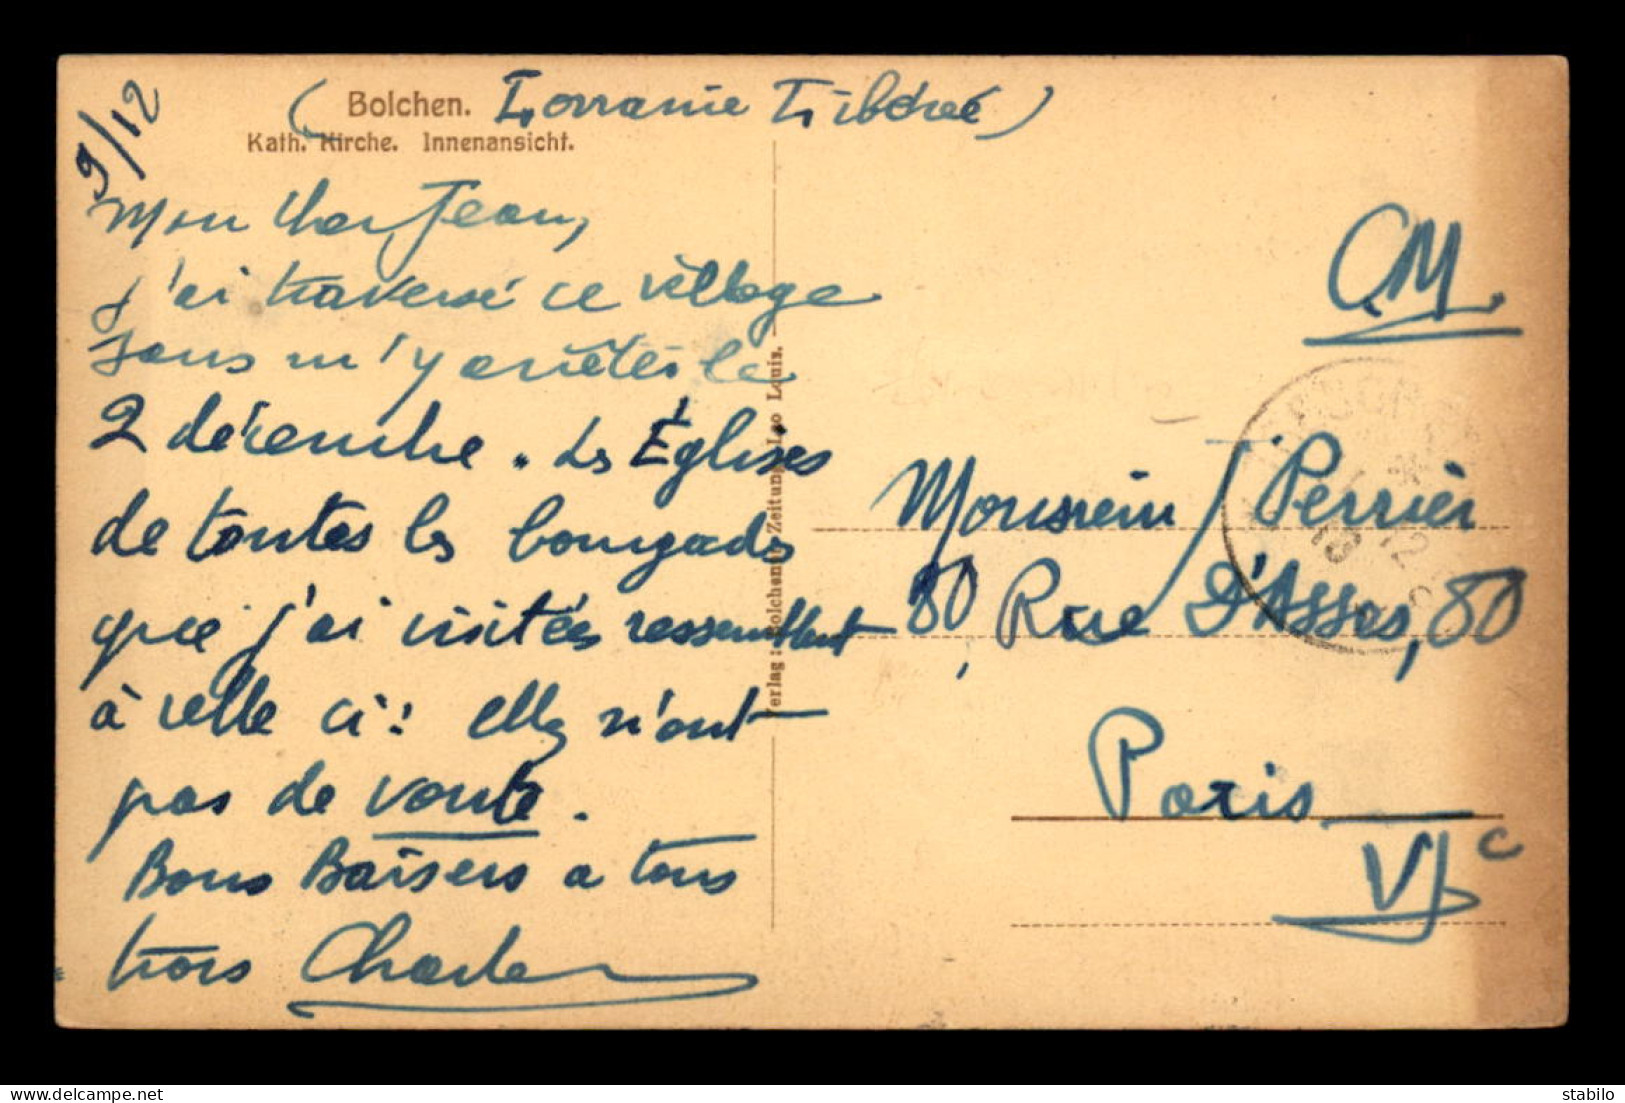 9/12
Bolchen. (Lorraine Libérée)
Kath. Kirche. Innenansicht.
Mon cher Jean,
j'ai traversé ce village
sans m'y arrêter le
2 décembre. Les Églises
de toutes les bourgades
que j'ai visitées ressemblent
à celle ci : elles n'ont
pas de voute.
Bons Baisers a tous
trois Charles
Verlag : Bolchener Zeitung, Leo Louis.
C.M.
Monsieur Perrier
80, Rue D'Assas, 80
Paris
VIe
stabilo